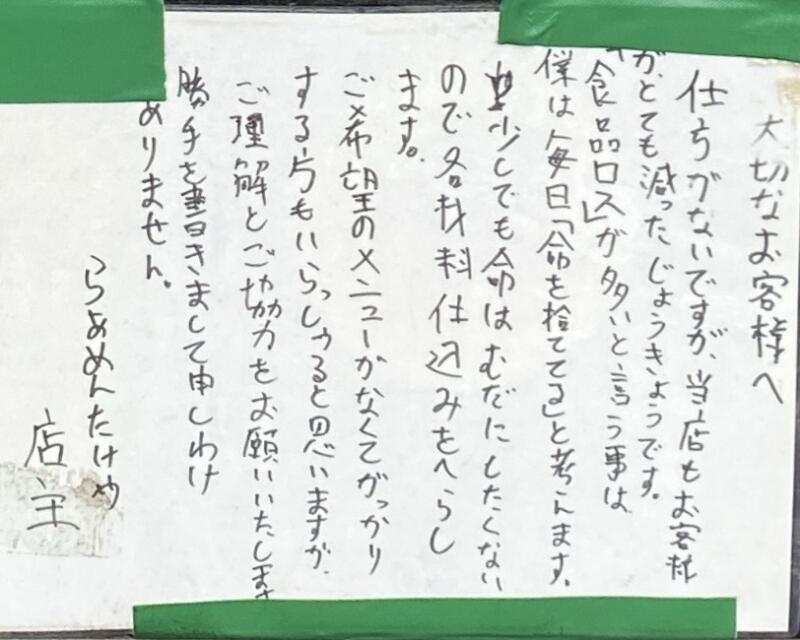 大切なお客様へ
仕方がないですが、当店もお客様
が、とても減ったじょうきょうです。
「食品ロス」が多いと言う事は
僕は毎日「命を捨ててる」と考えます。
少しでも命はむだにしたくない
ので各材料仕込みをへらし
ます。
ご希望のメニューがなくてがっかり
する方もいらっしゃると思いますが、
ご理解とご協力をお願いいたします
勝手を書きまして申しわけ
ありません。
らぁめんたけや
店主